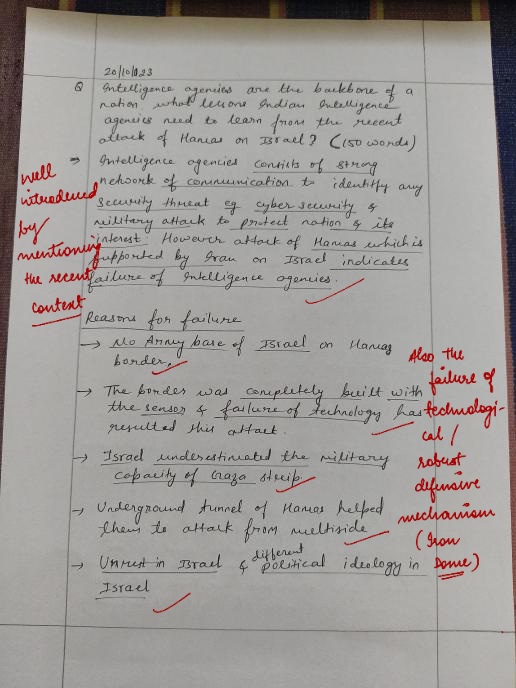 20/10/023
Q Intelligence agencies are the backbone of a
nation. what lessons Indian Intelligence
agencies need to learn from the recent
attack of Hamas on Israel? (150 words)
→ Intelligence agencies consists of strong
network of communication to identify any
security threat eg cyber security &
military attack to protect nation & its
interest. However attack of Hamas which is
supported by Iran on Israel indicates
failure of Intelligence agencies.
well
introduced
by
mentioning
the recent
context
Reasons for failure
→ No Army base of Israel on Hamas
border.
→ The border was completely built with
the sensor & failure of technology has
resulted this attack.
→ Israel underestimated the military
capacity of Gaza streip.
→ Underground tunnel of Hamas helped
them to attack from multiside
→ Unrest in Israel & different political ideology in
Israel
Also the
failure of
technologi-
cal /
robust
defensive
mechanism
(Iron
Dome)